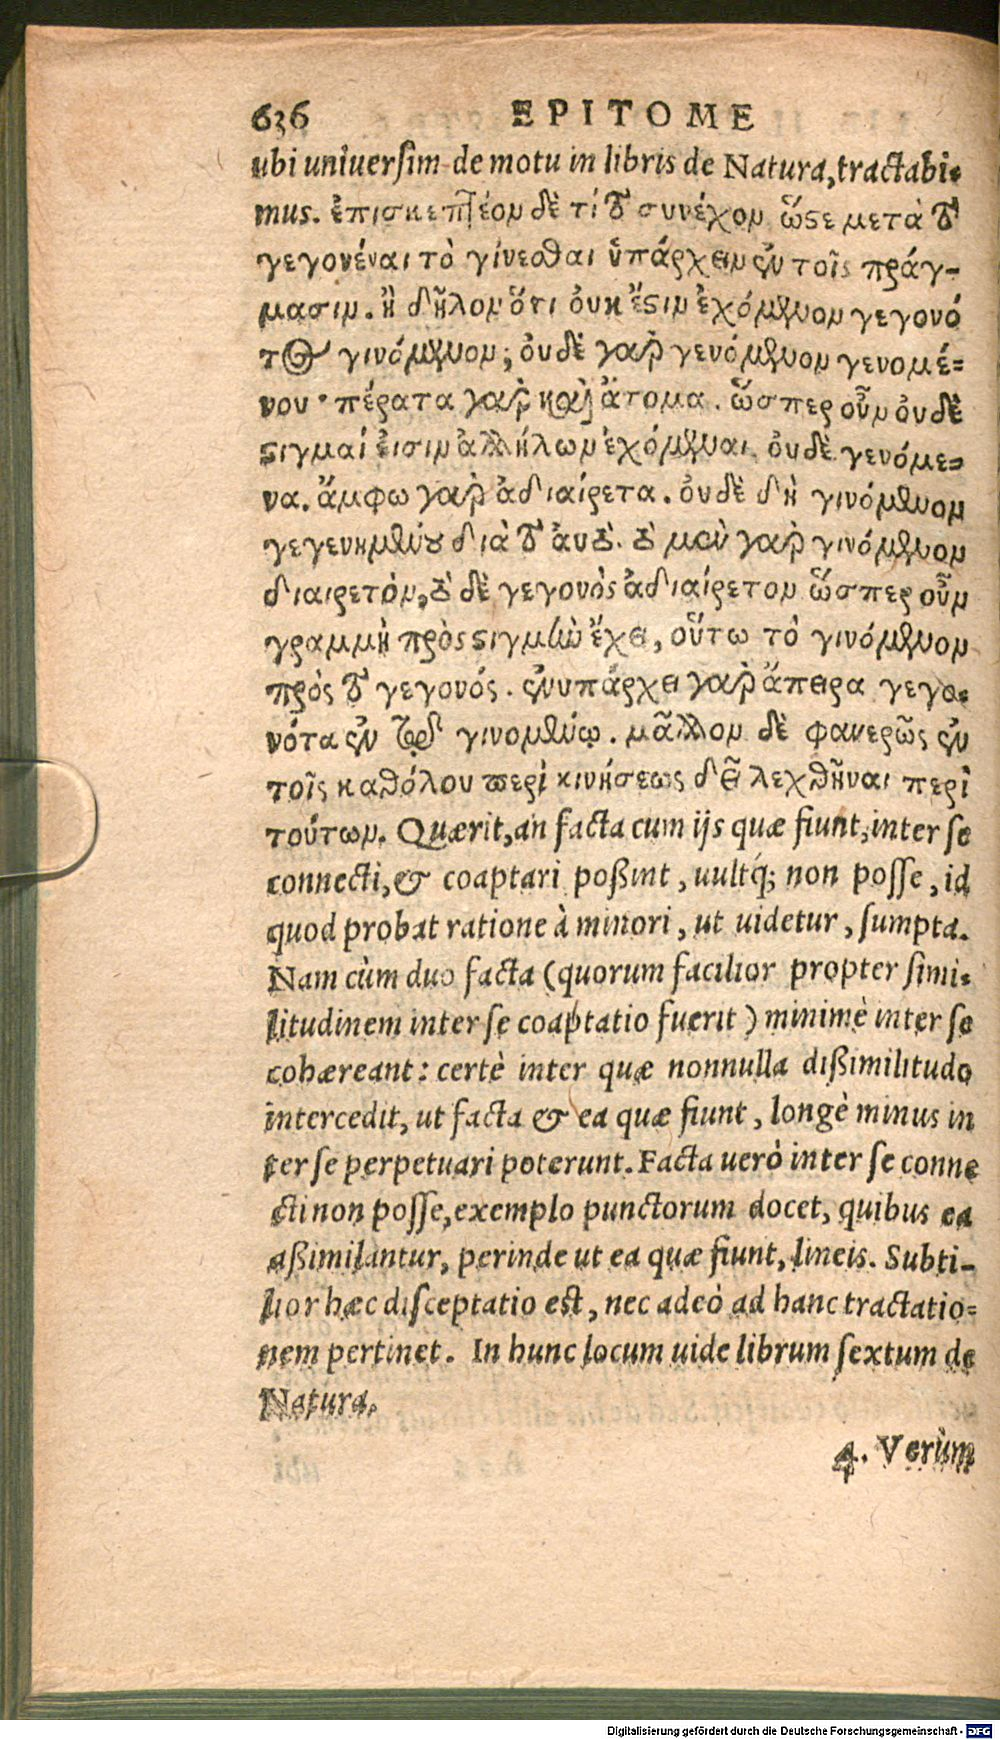 636 EPITOME
ubi uniuersim de motu in libris de Natura, tractabi-
mus. ἐπισκεπτέον δὲ τί τὸ συνέχον ὥστε μετὰ τὸ
γεγονέναι τὸ γίνεσθαι ὑπάρχειν ἐν τοῖς πράγ-
μασιν. ἢ δῆλον ὅτι οὐκ ἔστιν ἐχόμενον γεγονό
τος γινόμενον; οὐδὲ γὰρ γενόμενον γενομέ-
νου· πέρατα γὰρ καὶ ἄτομα. ὥσπερ οὖν οὐδὲ
στιγμαί εἰσιν ἀλλήλων ἐχόμεναι. οὐδὲ γενόμε-
να. ἄμφω γὰρ ἀδιαίρετα. οὐδὲ δὴ γινόμενον
γεγενημένου διὰ τὸ αὐτό. τὸ μὲν γὰρ γινόμενον
διαιρετόν, τὸ δὲ γεγονὸς ἀδιαίρετον ὥσπερ οὖν
γραμμὴ πρὸς στιγμὴν ἔχει, οὕτω τὸ γινόμενον
πρὸς τὸ γεγονός. ἐνυπάρχει γὰρ ἄπειρα γεγο-
νότα ἐν τῷ γινομένῳ. μᾶλλον δὲ φανερῶς ἐν
τοῖς καθόλου περὶ κινήσεως δεῖ λεχθῆναι περὶ
τούτων. Quærit, an facta cum ijs quæ fiunt, inter se
connecti, & coaptari poßint, uultq́; non posse, id
quod probat ratione à minori, ut uidetur, sumpta.
Nam cùm duo facta (quorum facilior propter simi-
litudinem inter se coaptatio fuerit) minimè inter se
cohæreant: certè inter quæ nonnulla dißimilitudo
intercedit, ut facta & ea quæ fiunt, longè minus in
ter se perpetuari poterunt. Facta uerò inter se conne
cti non posse, exemplo punctorum docet, quibus ea
aßimilantur, perinde ut ea quæ fiunt, lineis. Subti-
lior hæc disceptatio est, nec adeò ad hanc tractatio-
nem pertinet. In hunc locum uide librum sextum de
Natura.
4. Verùm
Digitalisierung gefördert durch die Deutsche Forschungsgemeinschaft - DFG